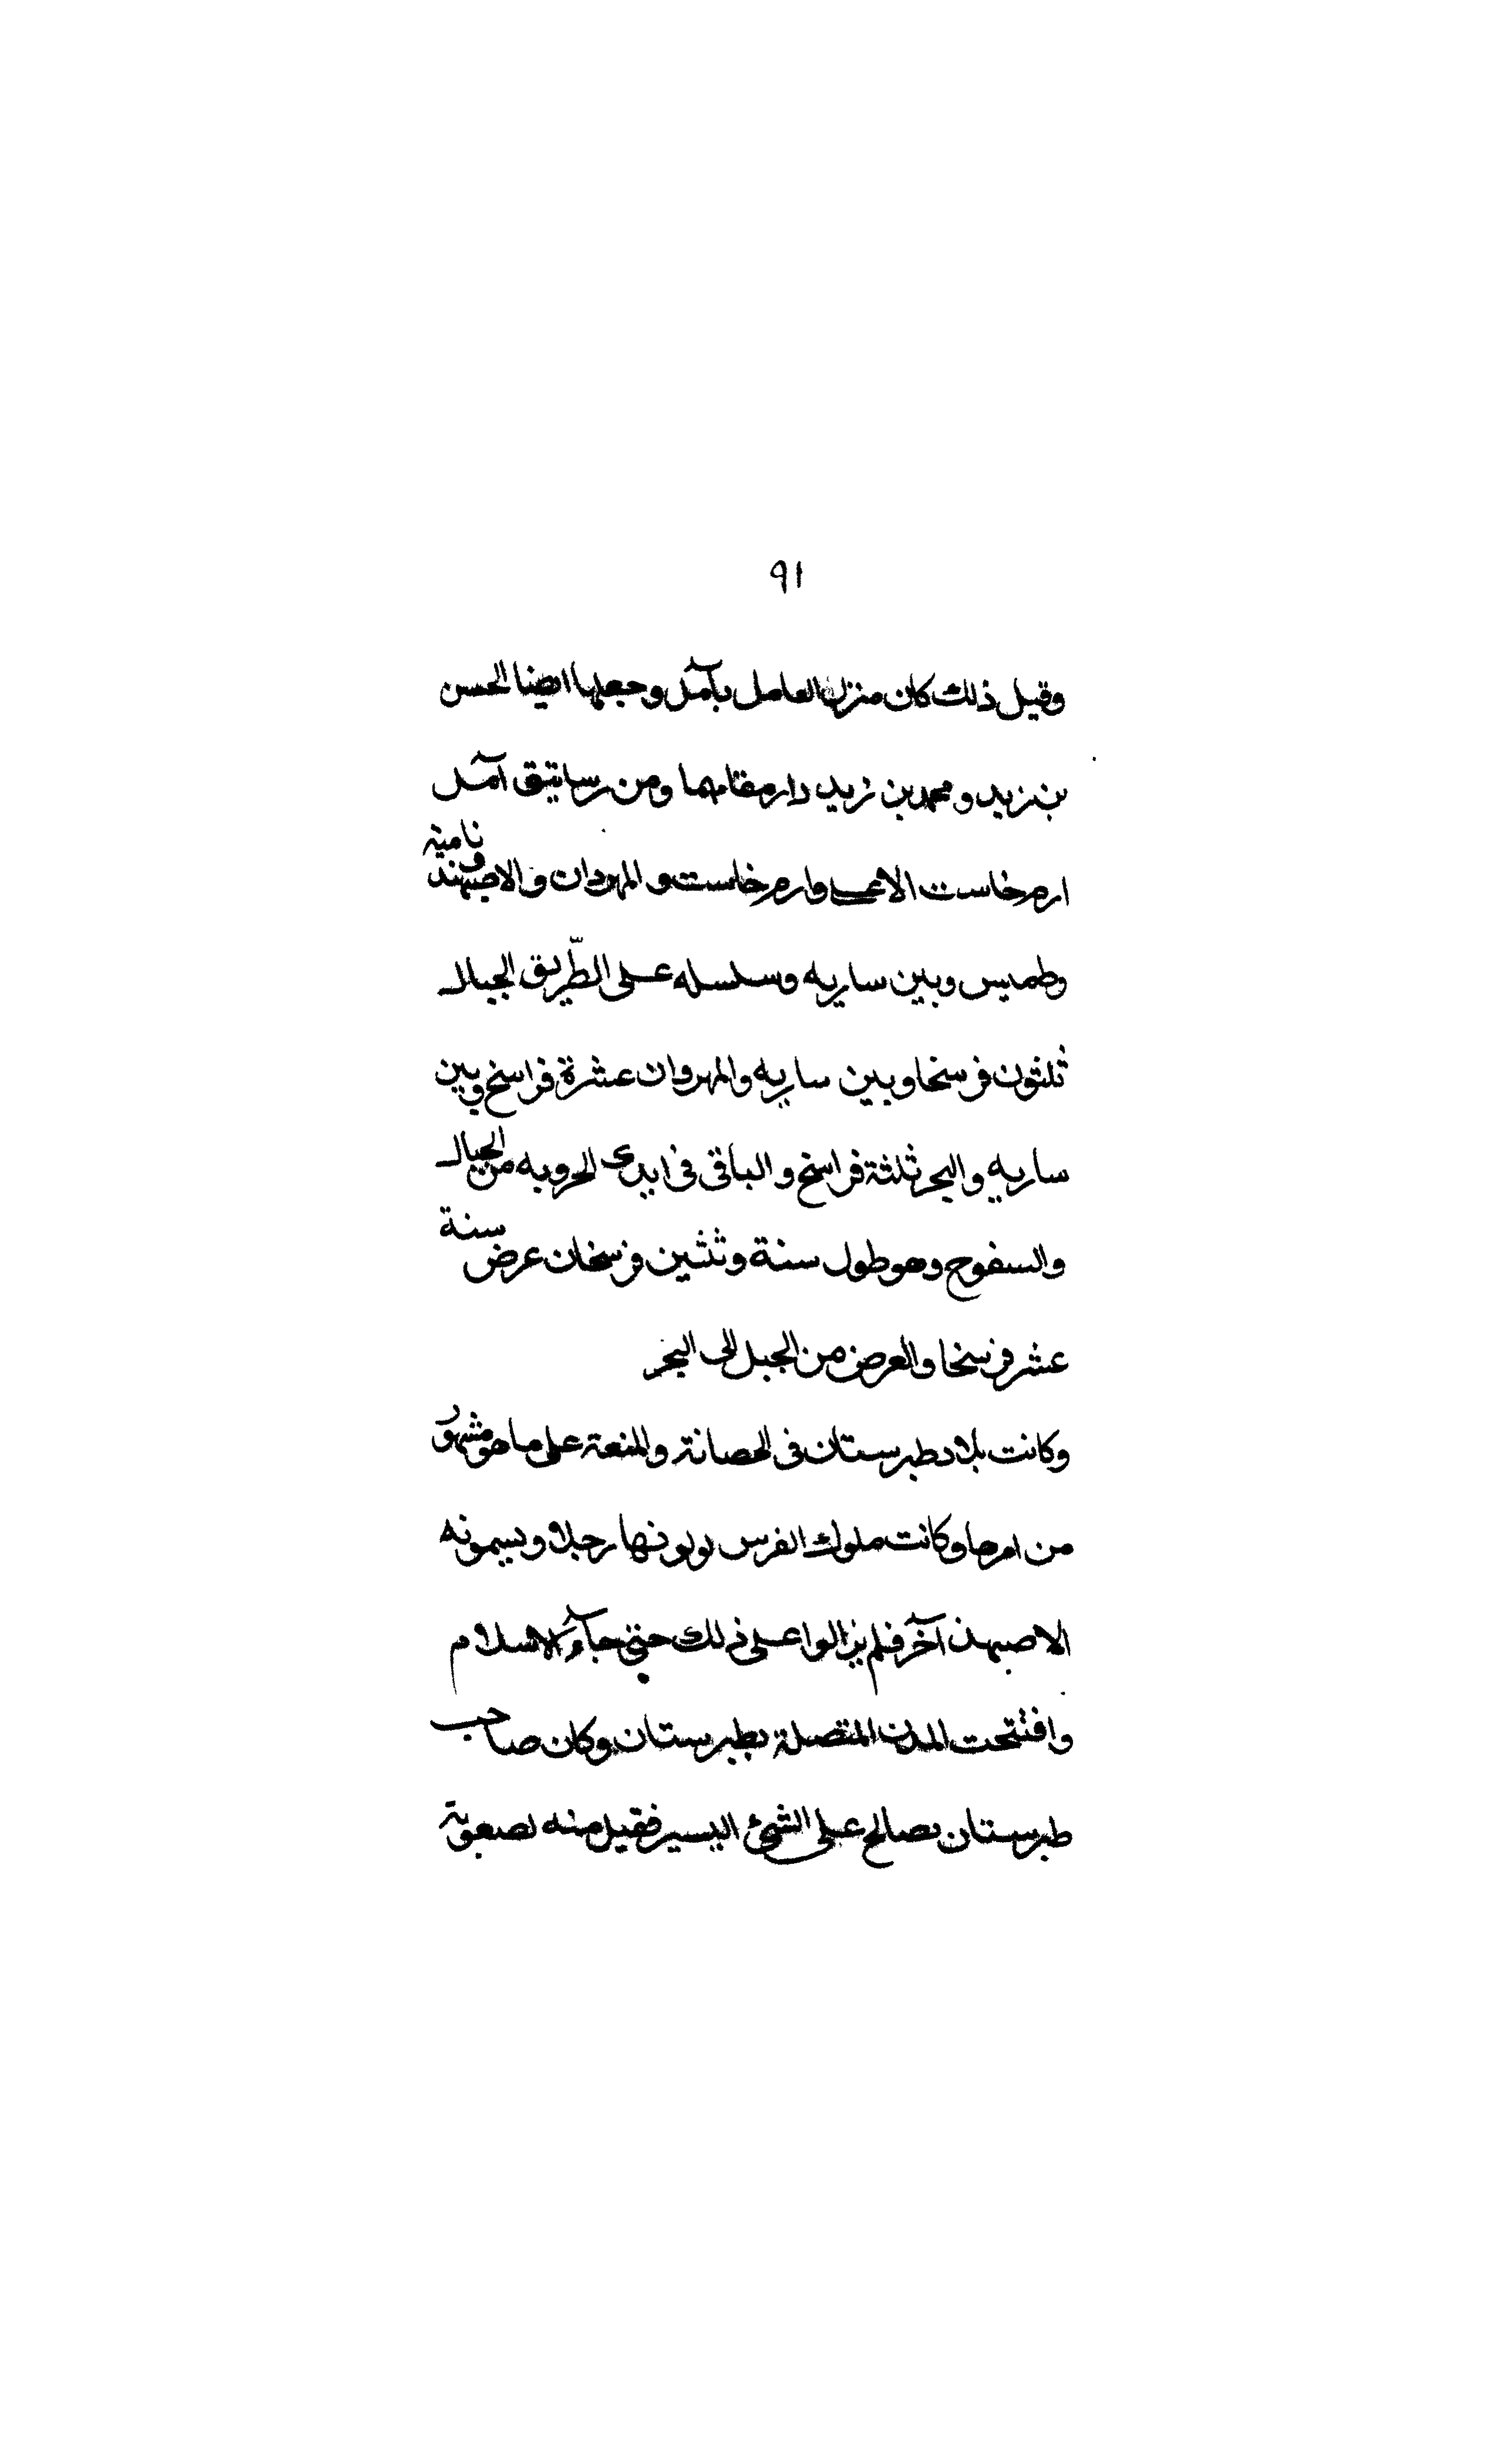 ٩١
وقيل ذلك كان منزل العامل بآمل وجعلها ايضا الحسن
بن زيد ومحمد بن زيد دار مقامهما ومن رساتيق آمل
ارم خاست الاعلى وارم خاست و المهردان و الاصبهند و نامية
وطميس وبين ساريه وسلسله على الطّريق الجبال
ثلثون فرسخا وبين ساريه والمهروان عشرة فراسخ وبين
ساريه والبحر ثلثة فراسخ و الباقى فى ايدى الحرويه من الجبال
والسفوح وهو طول ستة وثلثين فرسخان عرض ستة
عشر فرسخا والعرض من الجبل الى البحر
وكانت بلاد طبرستان فى الحصانة والمنعة على ما هو مشهور
من امرها وكانت ملوك الفرس يولونها رجلا ويسمونه
الاصبهذ آخر فلم يزالوا على ذلك حتى جآء الاسلام
وافتتحت المدن المتصلة بطبرستان وكان صاحب
طبرستان يصالح على الشئ اليسير فقيل منه لصعوبة